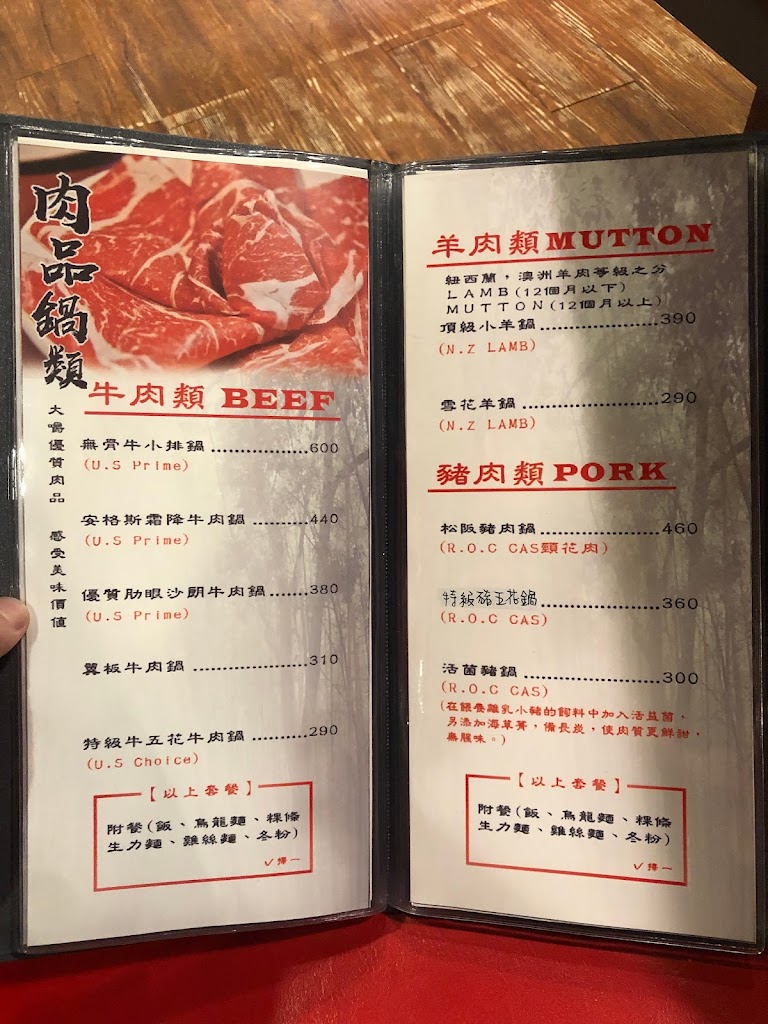 肉品鍋類
大嚼優質肉品 感受美味價值
牛肉類 BEEF
無骨牛小排鍋 ..................600
(U.S Prime)
安格斯霜降牛肉鍋 ..........440
(U.S Prime)
優質肋眼沙朗牛肉鍋.......380
(U.S Prime)
翼板牛肉鍋 .....................310
特級牛五花牛肉鍋 ..........290
(U.S Choice)
【以上套餐】
附餐(飯、烏龍麵、粿條
生力麵、雞絲麵、冬粉)
✓擇一
羊肉類MUTTON
紐西蘭，澳洲羊肉等級之分
LAMB(12個月以下)
MUTTON(12個月以上)
頂級小羊鍋......................390
(N.Z LAMB)
雪花羊鍋.........................290
(N.Z LAMB)
豬肉類PORK
松阪豬肉鍋......................460
(R.O.C CAS頸花肉)
特級豬五花鍋......................360
(R.O.C CAS)
活菌豬鍋.........................300
(R.O.C CAS)
(在餵養離乳小豬的飼料中加入活益菌，
另添加海草菁，備長炭，使肉質更鮮甜，
無腥味。)
【以上套餐】
附餐(飯、烏龍麵、粿條
生力麵、雞絲麵、冬粉)
✓擇一